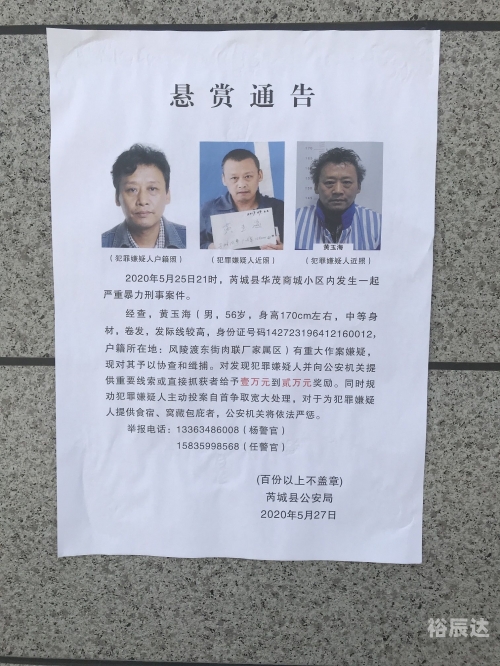 悬赏通告
黄玉海
(犯罪嫌疑人户籍照)
(犯罪嫌疑人近照)
(犯罪嫌疑人近照)
2020年5月25日21时，芮城县华茂商城小区内发生一起
严重暴力刑事案件。
经查，黄玉海（男，56岁，身高170cm左右，中等身
材，卷发，发际线较高，身份证号码142723196412160012，
户籍所在地：风陵渡东街肉联厂家属区）有重大作案嫌疑，
现对其予以协查和缉捕。对发现犯罪嫌疑人并向公安机关提
供重要线索或直接抓获者给予壹万元到贰万元奖励。同时规
劝犯罪嫌疑人主动投案自首争取宽大处理，对于为犯罪嫌疑
人提供食宿、窝藏包庇者，公安机关将依法严惩。
举报电话：13363486008（杨警官）
15835998568（任警官）
(百份以上不盖章)
芮城县公安局
2020年5月27日
裕辰达